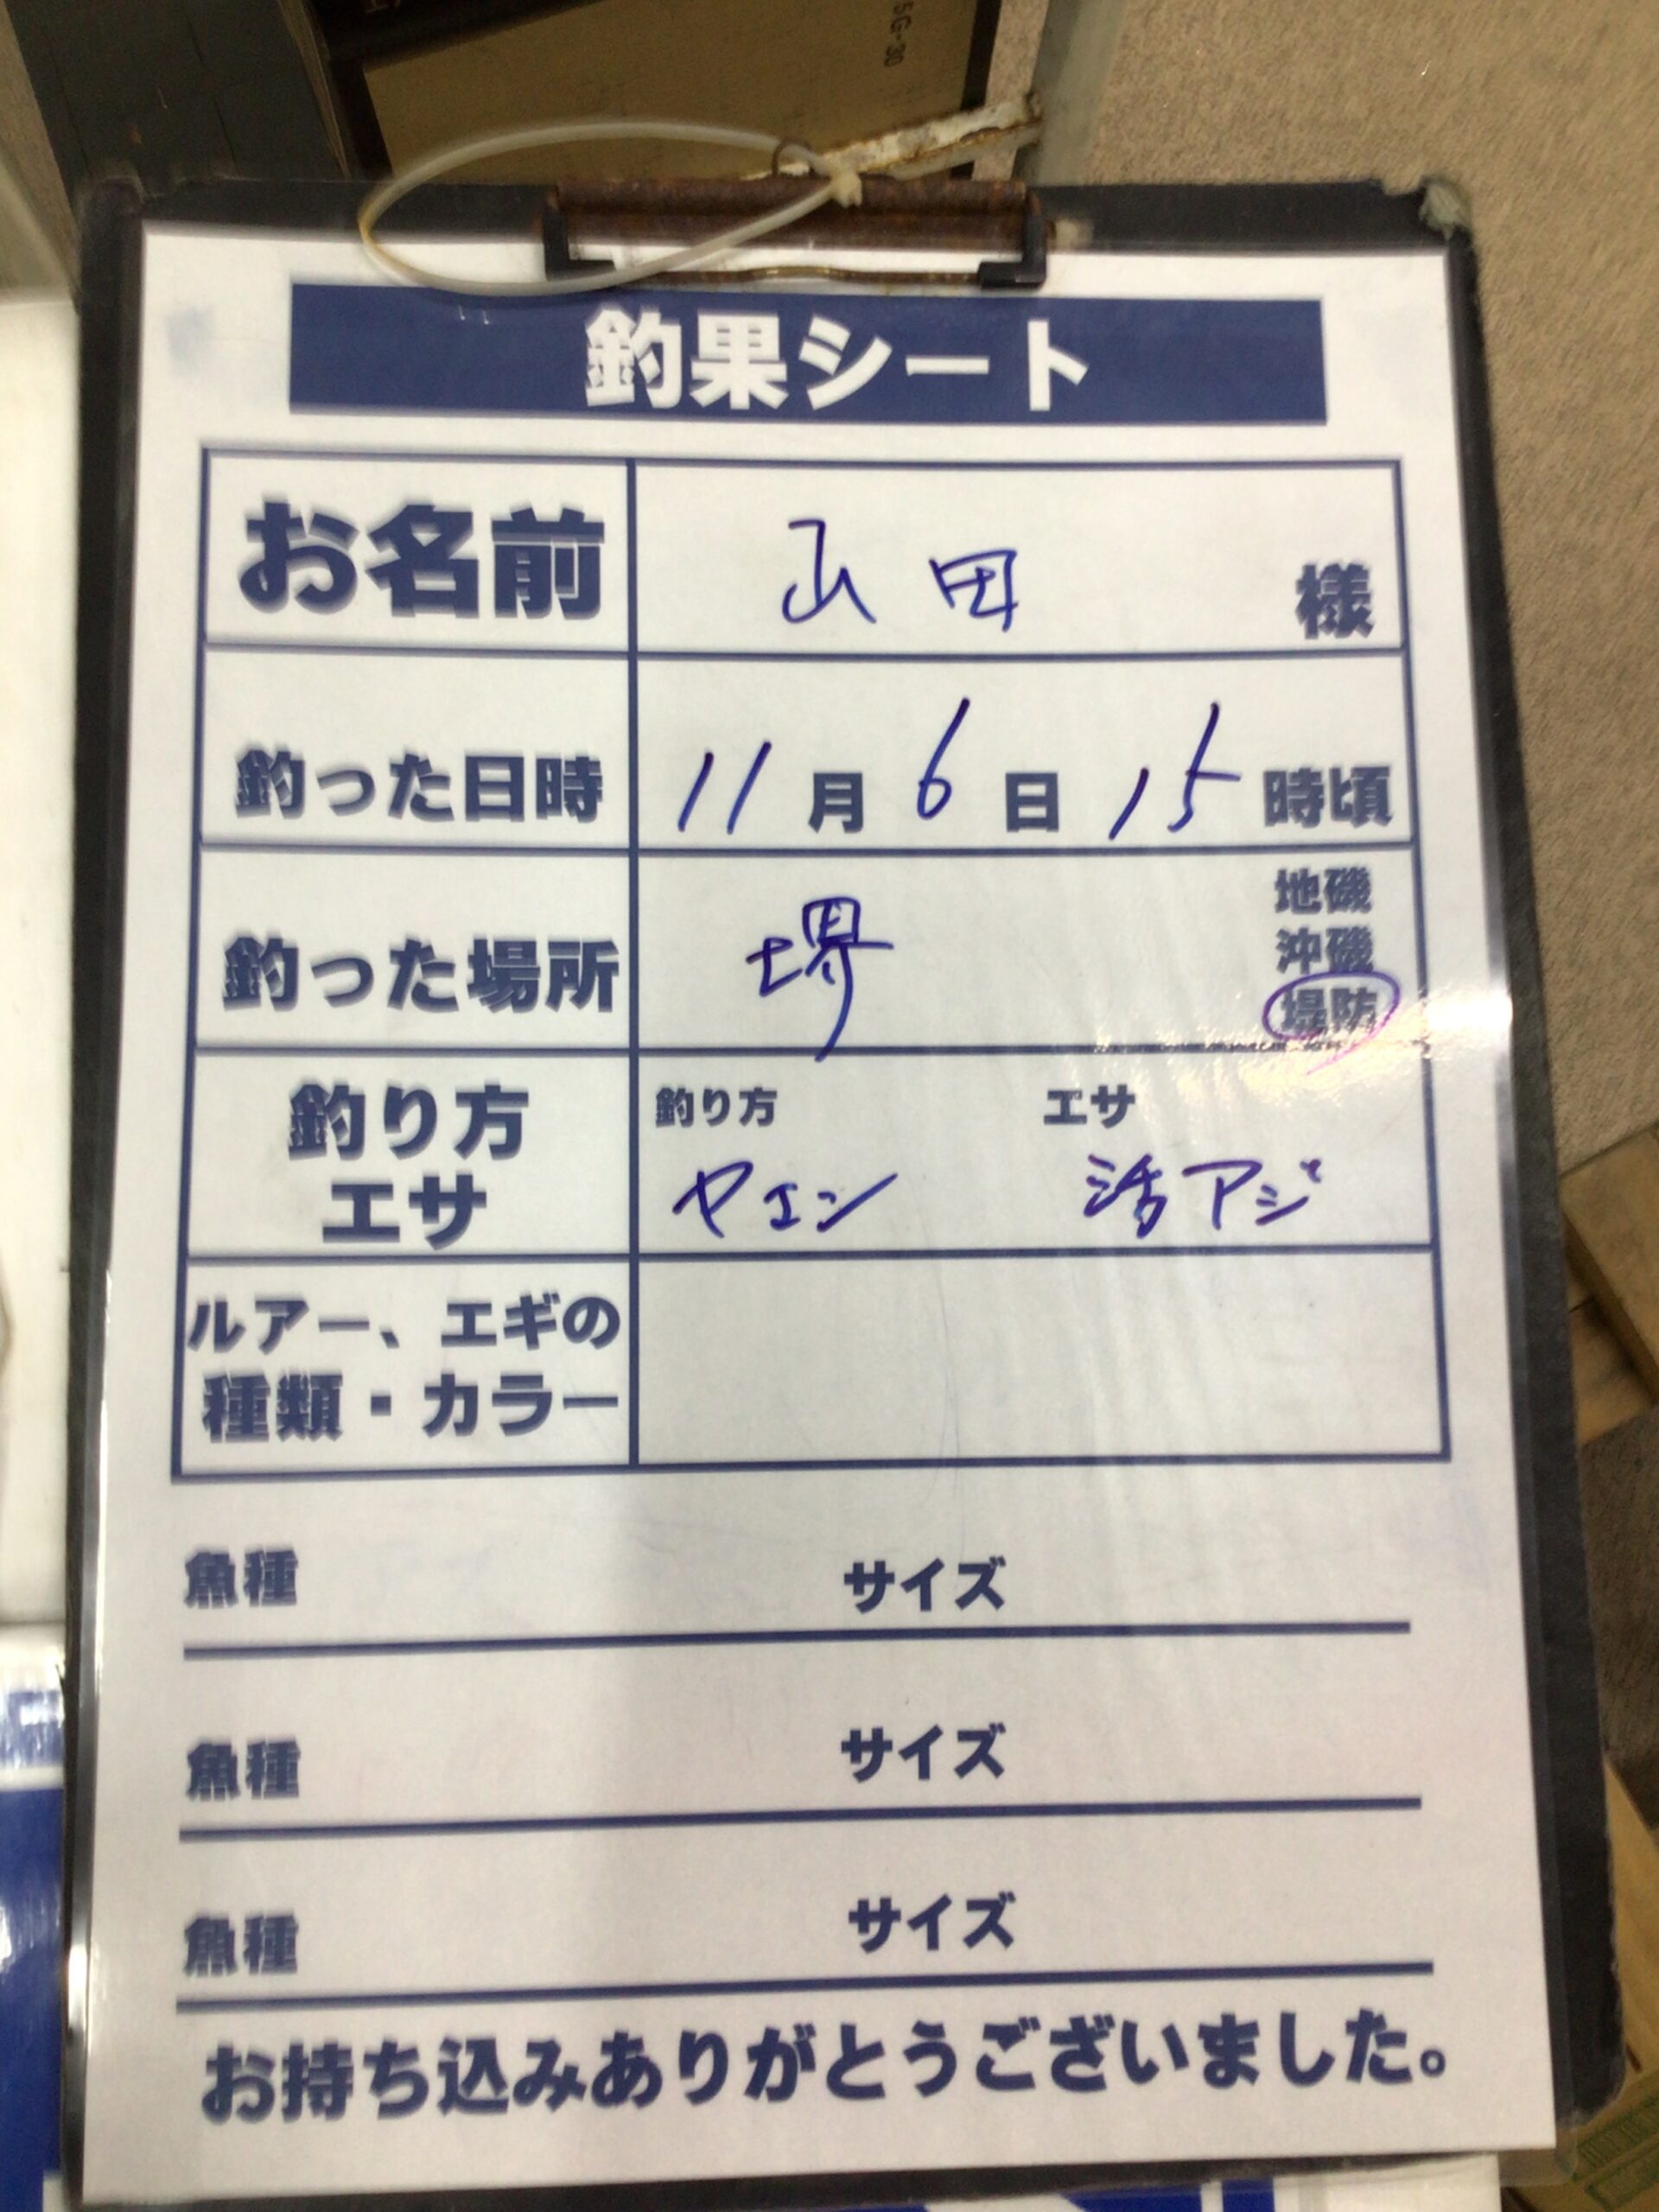 5G-30
釣果シート
お名前 山田 様
釣った日時 11月6日15時頃
釣った場所 堺 地磯
沖磯
堤防
釣り方
エサ
釣り方 エサ
ヤエン 活アジ
ルアー、エギの
種類・カラー
魚種 サイズ
魚種 サイズ
魚種 サイズ
お持ち込みありがとうございました。